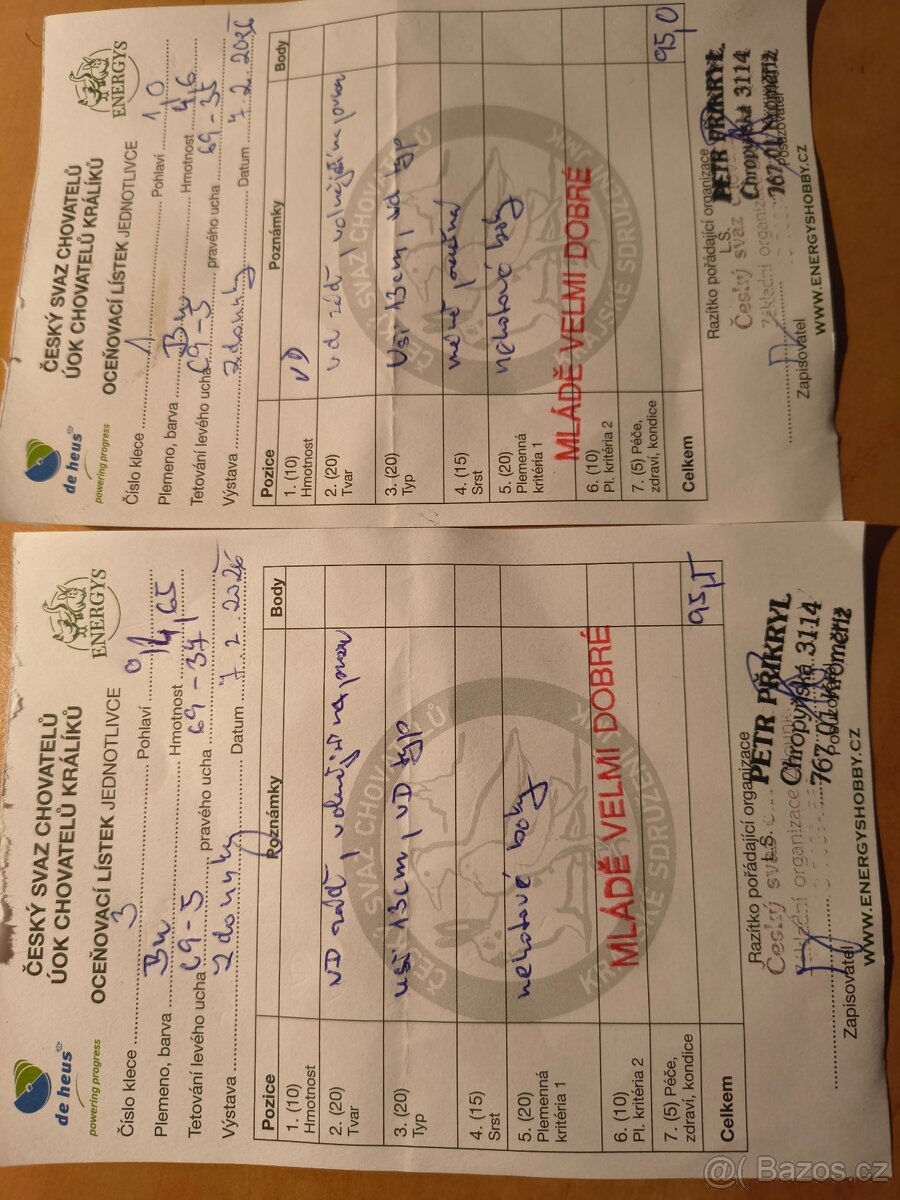 de heus
powering progress
ČESKÝ SVAZ CHOVATELŮ
ÚOK CHOVATELŮ KRÁLÍKŮ
OCEŇOVACÍ LÍSTEK JEDNOTLIVCE
ENERGYS
Číslo klece 1 Pohlaví 1,0
Plemeno, barva Bu Hmotnost 4,6
Tetování levého ucha 69-5 pravého ucha 69-35
Výstava Zdounky Datum 7.2.2026
Pozice Poznámky Body
1. (10) Hmotnost VD
2. (20) Tvar vd záď, volnější na prsou
3. (20) Typ Uši 13cm, vd typ
4. (15) Srst méně pružná
5. (20) Plemenná kritéria 1 nehotové boky
MLÁDĚ VELMI DOBRÉ
6. (10) Pl. kritéria 2
7. (5) Péče, zdraví, kondice
Celkem 95,0
Razítko pořádající organizace
L.S.
PETR PŘIKRYL
Český svaz
Chropyňská 3114
Základní organizace
767 01 Kroměříž
Zapisovatel Posuzovatel
WWW.ENERGYSHOBBY.CZ
de heus
powering progress
ČESKÝ SVAZ CHOVATELŮ
ÚOK CHOVATELŮ KRÁLÍKŮ
OCEŇOVACÍ LÍSTEK JEDNOTLIVCE
ENERGYS
Číslo klece 3 Pohlaví 0,1
Plemeno, barva Bu Hmotnost 4,65
Tetování levého ucha 69-5 pravého ucha 69-37
Výstava Zdounky Datum 7.2.2026
Pozice Poznámky Body
1. (10) Hmotnost
2. (20) Tvar VD záď, volnější na prsou
3. (20) Typ uši 13cm, VD typ
4. (15) Srst
5. (20) Plemenná kritéria 1 nehotové boky
MLÁDĚ VELMI DOBRÉ
6. (10) Pl. kritéria 2
7. (5) Péče, zdraví, kondice
Celkem 95,5
Razítko pořádající organizace
L.S.
PETR PŘIKRYL
Český svaz
Chropyňská 3114
Základní organizace
767 01 Kroměříž
Zapisovatel Posuzovatel
WWW.ENERGYSHOBBY.CZ
Bazos.cz